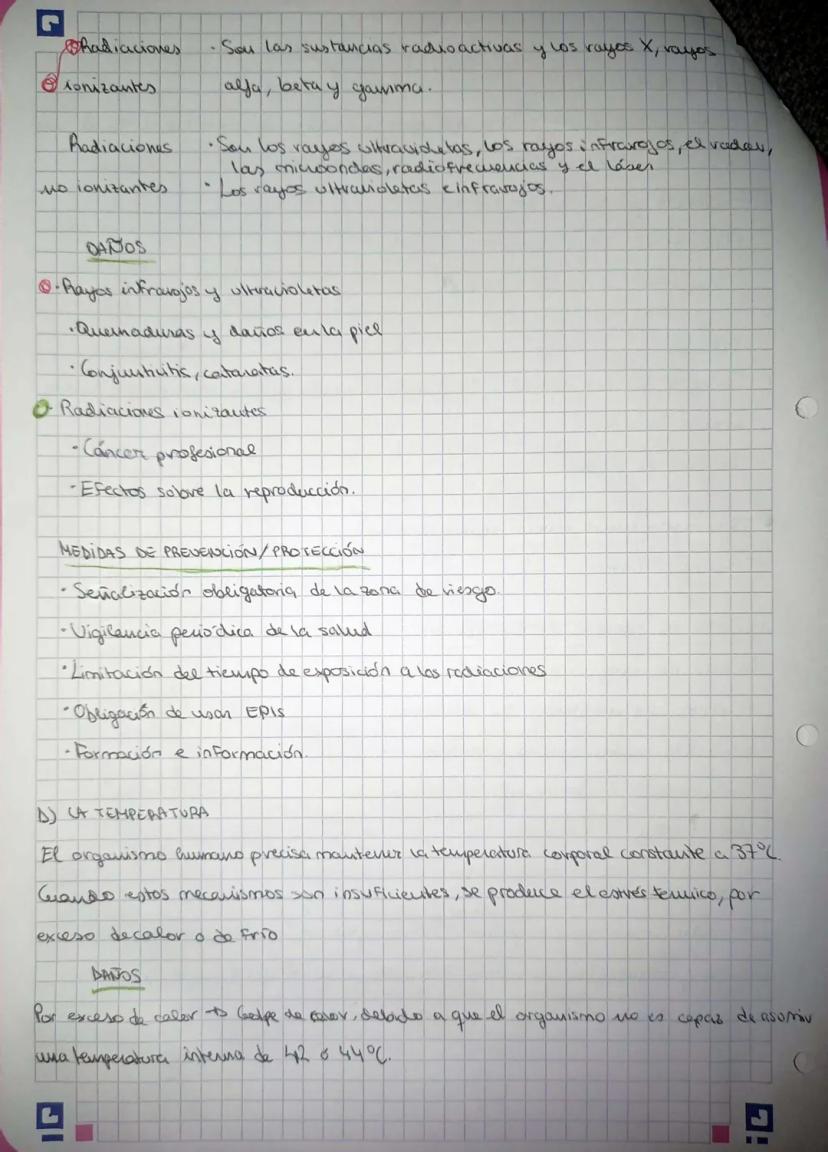 Radiaciones · Son las sustancias radioactivas y los rayos X, rayos
ionizantes alfa, beta y gamma.
Radiaciones · Son los rayos ultravioletas, los rayos infrarojos, el radar,
las microondas, radiofrecuencias y el láser
no ionizantes · Los rayos ultravioletas e infrarojos.
DAÑOS
· Rayos infrarojos y ultravioletas
· Quemaduras y daños en la piel
· Conjuntivitis, cataratas.
Radiaciones ionizantes
- Cáncer profesional
- Efectos sobre la reproducción.
MEDIDAS DE PREVENCIÓN/PROTECCIÓN
· Señalización obligatoria de la zona de riesgo.
· Vigilancia periódica de la salud
· Limitación del tiempo de exposición a las radiaciones
· Obligación de usar EPIS
· Formación e información.
D) LA TEMPERATURA
El organismo humano precisa mantener la temperatura corporal constante a 37ºC.
Cuando estos mecanismos son insuficientes, se produce el estrés termico, por
exceso de calor o de frío
DAÑOS
Por exceso de calor → Golpe de calor, debido a que el organismo no es capaz de asomir
una temperatura interna de 42 ó 44ºC.